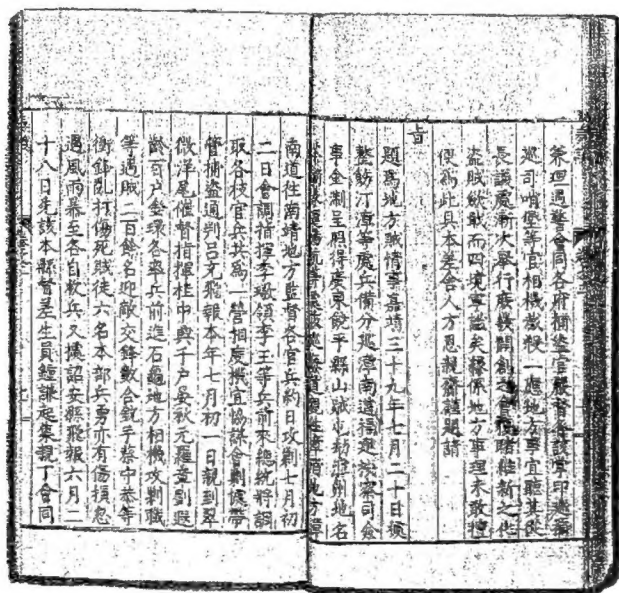 管理遇警會同各府捕盜官嚴督各該掌印巡蔽
巡司哨堡等官相機截殺一應地方事宜聽其從
長議處漸次舉行庶幾開創之會復睹維新之化
盜賊歛戢而四境寧謐矣緣係地方事理未敢擅
便為此具本差舍人方恩親齎謹題請
旨
題為地方賊情事嘉靖三十九年七月二十日據
整飭汀漳等處兵備分巡漳南道福建按察司僉
事金淛呈照得廣東饒平縣山賊屯劫
南道往南靖地方監督各官兵約日攻剿七月初
二日會調指揮李 領李王等兵前來總統將調
取各枝官兵共為一營相度機宜協謀會剿僾帶
管捕盜通判呂元飛報本年七月初一日親到翠
微洋尾催督指揮桂中興千戶晏秋元羅章劉遐
齡百戶金環各率兵前進石龜地方相機攻剿職
等遇賊二百餘名迎敵交鋒數合銃手蔡中恭等
衝鋒亂打傷死賊徒六名本部兵勇亦有傷損忽
遇風雨暴至各自收兵又據詔安縣飛報六月二
十八日先該本縣督差生員鍾謙起集親丁會同